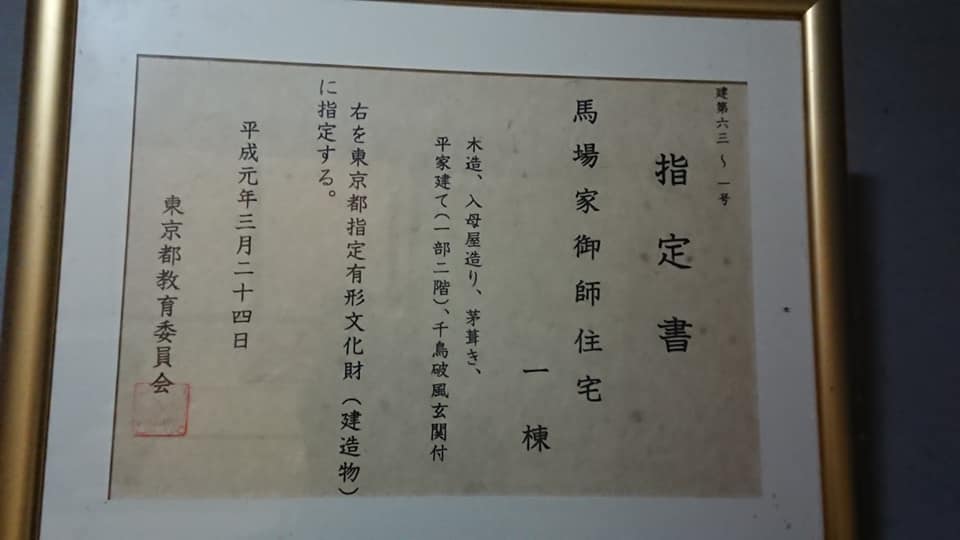 建第六三～一号
指定書
馬場家御師住宅
一棟
木造、入母屋造り、茅葺き、
平家建て（一部二階）、千鳥破風玄関付
右を東京都指定有形文化財（建造物）
に指定する。
平成元年三月二十四日
東京都教育委員会